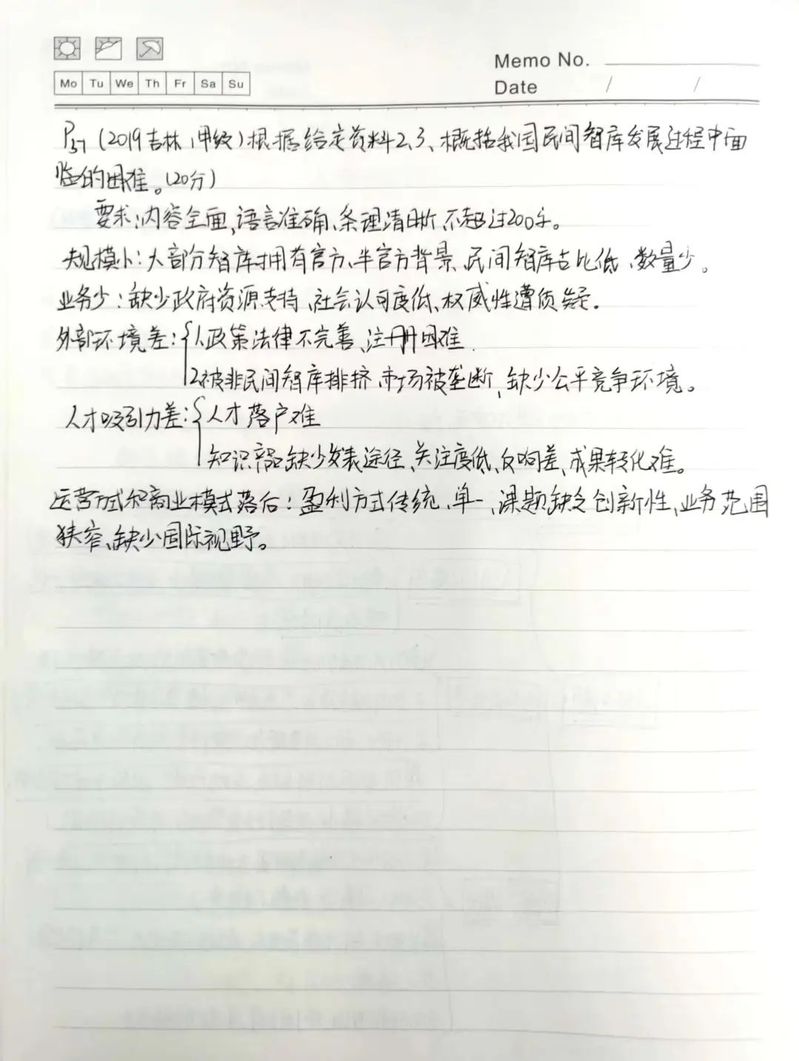 Memo No.
Mo Tu We Th Fr Sa Su
Date / /
P37 (2019吉林甲级)根据给定资料2、3、概括我国民间智库发展过程中面
临的困难。(20分)
要求:内容全面、语言准确、条理清晰、不超过200字。
规模小:大部分智库拥有官方、半官方背景、民间智库占比低、数量少。
业务少:缺少政府资源支持、社会认可度低、权威性遭质疑.
外部环境差:{1.政策法律不完善、注册困难.
2.被非民间智库排挤、市场被垄断、缺少公平竞争环境。
人才吸引力差:{人才落户难
知识产品缺少发表途径、关注度低、反响差、成果转化难。
运营方式和商业模式落后:盈利方式传统、单一、课题缺乏创新性、业务范围
狭窄、缺少国际视野。